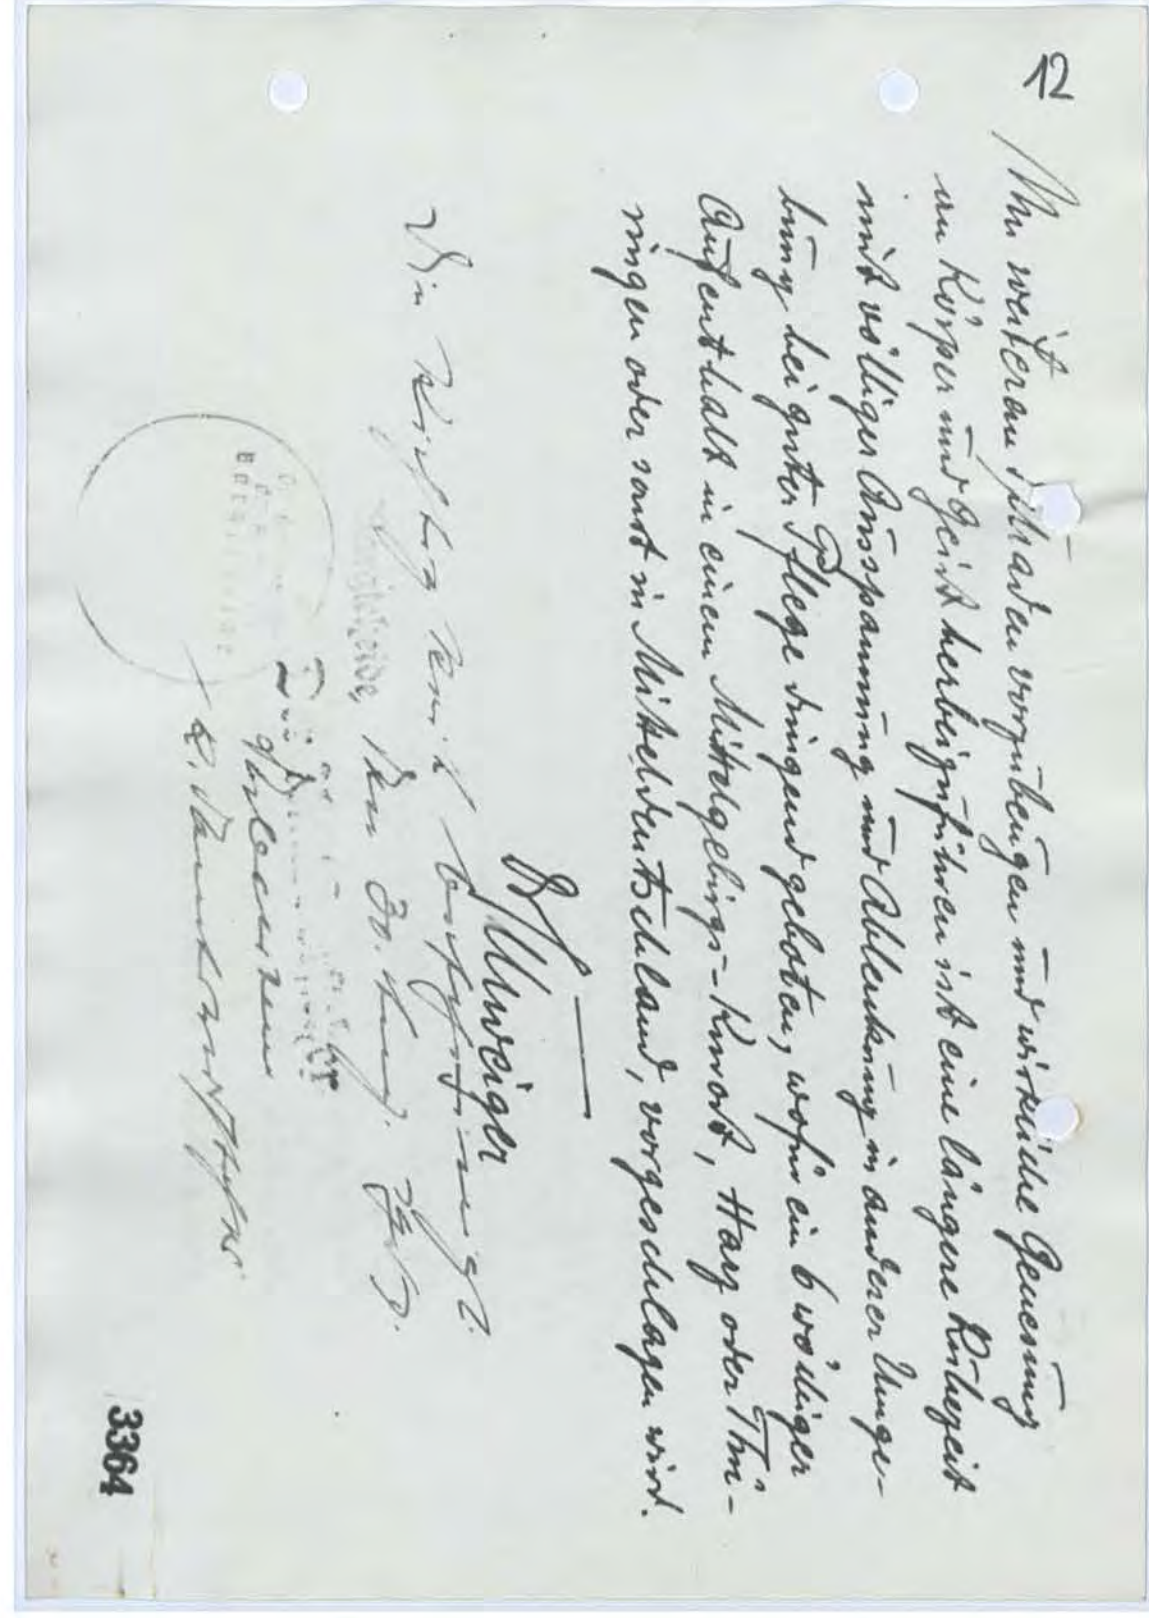 12
Um weiteren Schaden vorzubeugen und wirkliche Genesung
an Körper und Geist herbeizuführen ist eine längere Ruhezeit
mit völliger Ausspannung und Ablenkung in anderer Umge-
bung bei guter Pflege dringend geboten, wofür ein 6 wöchiger
Aufenthalt in einem Mittelgebirgs-Kurort, Harz oder Thü-
ringen oder sonst in Mitteldeutschland, vorgeschlagen wird.
Die Richtigkeit bescheinigt.
den 30. Aug.
3364